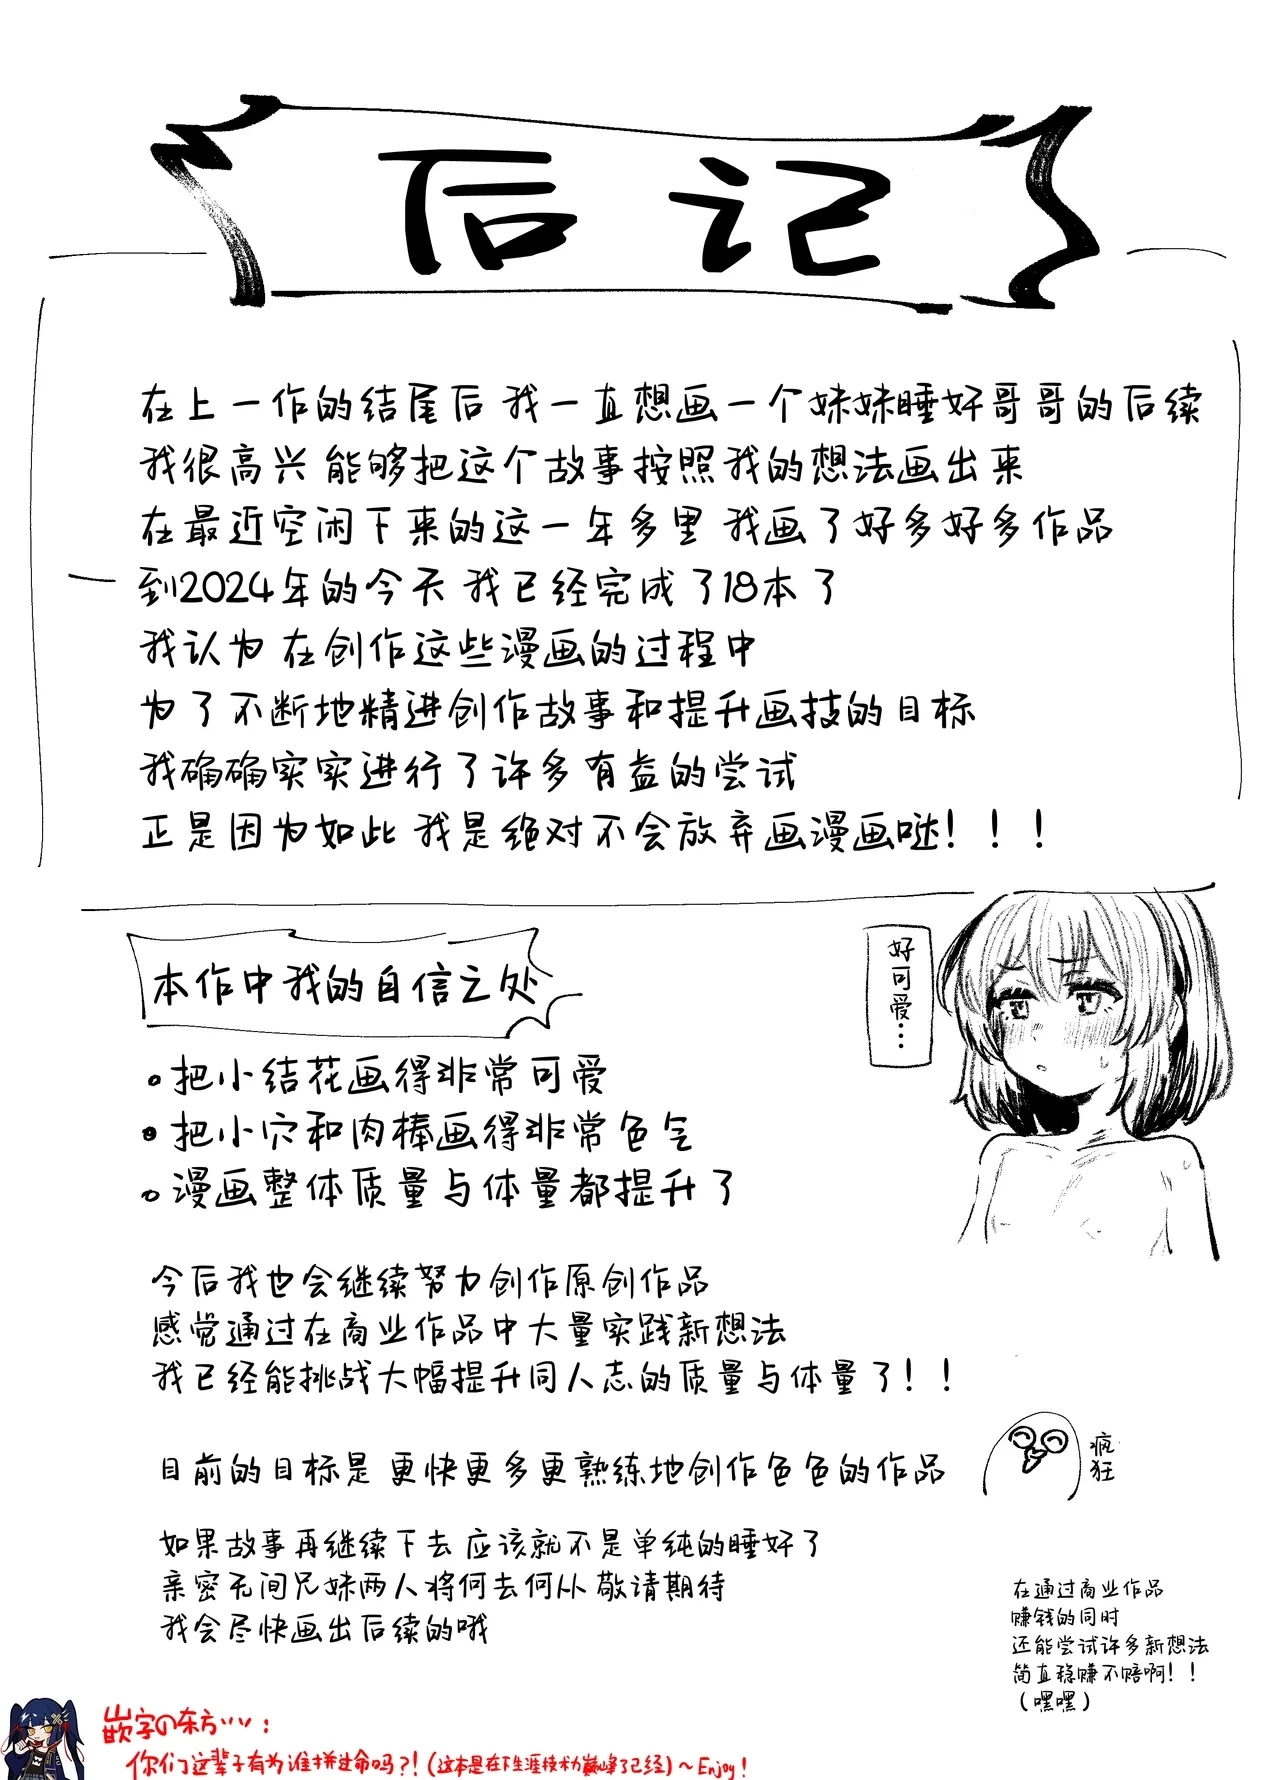 后记
在上一作的结尾后 我一直想画一个妹妹睡奸哥哥的后续
我很高兴 能够把这个故事按照我的想法画出来
在最近空闲下来的这一年多里 我画了好多好多作品
到2024年的今天 我已经完成了18本了
我认为 在创作这些漫画的过程中
为了不断地精进创作故事和提升画技的目标
我确确实实进行了许多有益的尝试
正是因为如此 我是绝对不会放弃画漫画哒！！！
好可爱…
本作中我的自信之处
把小结花画得非常可爱
把小穴和肉棒画得非常色气
漫画整体质量与体量都提升了
今后我也会继续努力创作原创作品
感觉通过在商业作品中大量实践新想法
我已经能挑战大幅提升同人志的质量与体量了！！
目前的目标是 更快更多更熟练地创作色色的作品
疯狂
如果故事再继续下去 应该就不是单纯的睡奸了
亲密无间兄妹两人将何去何从 敬请期待
我会尽快画出后续的哦
在通过商业作品
赚钱的同时
还能尝试许多新想法
简直稳赚不赔啊！！
（嘿嘿）
嵌字の东方ツツ：
你们这辈子有为谁拼过命吗?!(这本是在下生涯技术力巅峰了已经)~Enjoy!